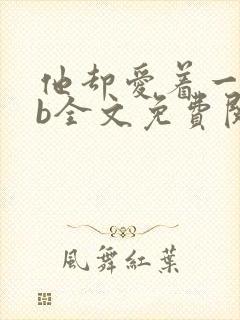 他却爱着一
b全文免費閱
風舞紅葉